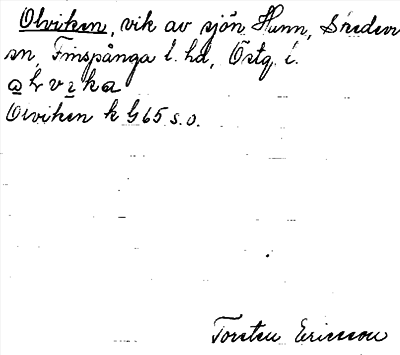 Olviken, vik av sjön Hunn, Risinge
sn, Finspånga l. hd, Östg. l.
Olviken k G65 s.o.
Torsten Ericsson